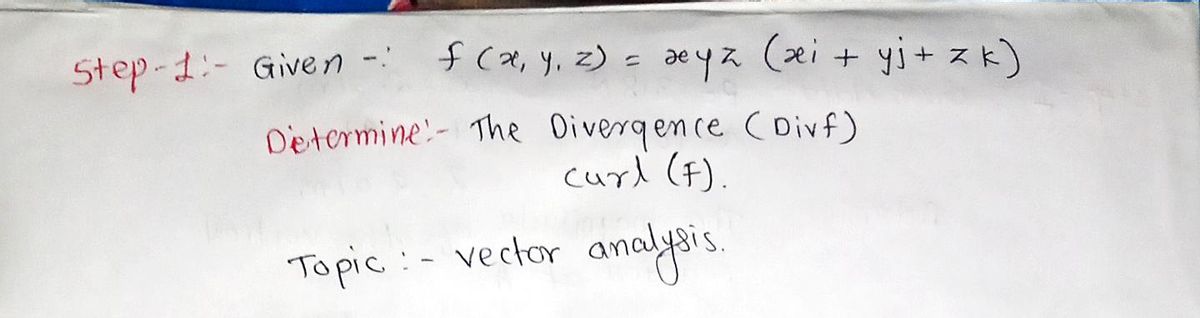 Step-1:- Given -: f(x, y, z) = xyz (xi + yj + zk)
Determine:- The Divergence (Divf)
curl (F).
Topic :- vector analysis.